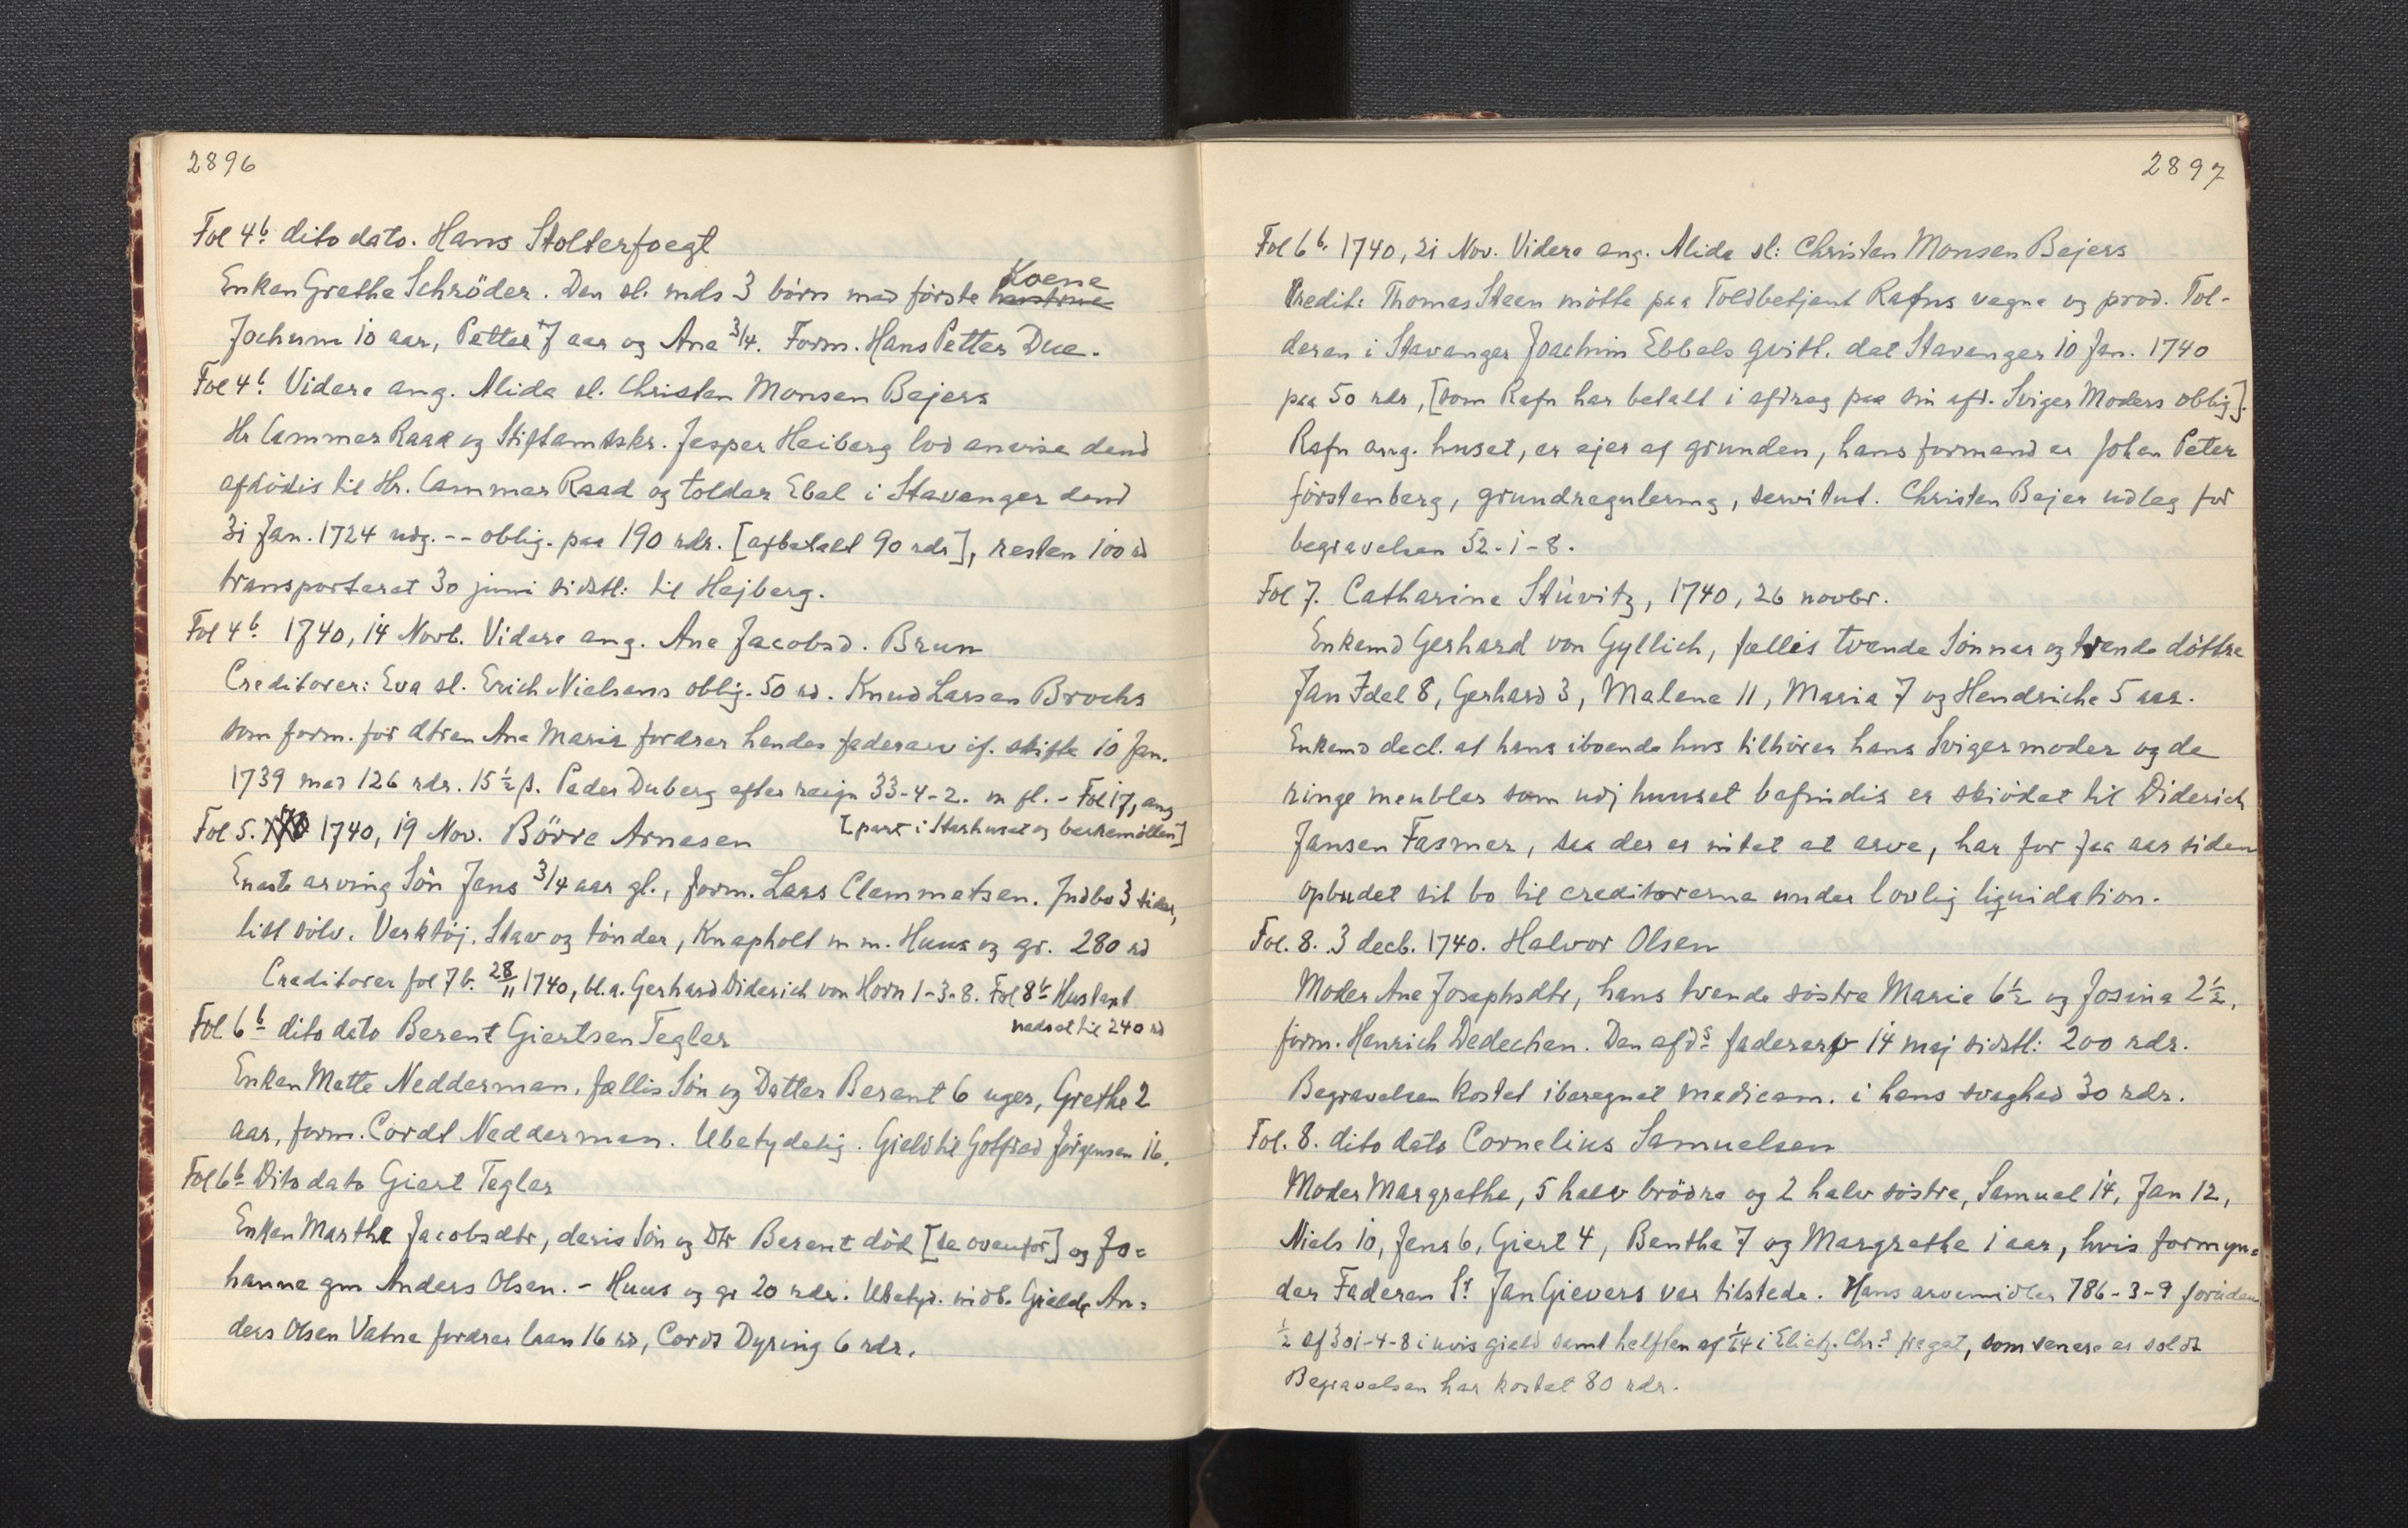 2896
Fol 4b. dito dato. Hans Stolterfoegt
Enken Grethe Schröder. Den sl. mds 3 börn med förste Koene
Jochum 10 aar, Petter 7 aar og Ane 3/4. Form. Hans Petter Due.
Fol 4b. Videre ang. Alida sl. Christen Monsen Bejers
Hr Cammer Raad og Stiftamtskr. Jesper Heiberg lod anvise dend
afdödis til Hr. Cammer Raad og tolder Ebel i Stavanger dend
31 Jan. 1724 udg. -- oblig. paa 190 rdr. [afbetalt 90 rdr], resten 100 rd
transporteret 30 juni sidstl: til Hejberg.
Fol 4b. 1740, 14 Novb. Videre ang. Ane Jacobsd. Brun
Creditorer: Eva sl. Erich Nielsens oblig. 50 rd. Knud Larsen Brochs
som form. for dtren Ane Maria fordrer hendes faderarv if. skifte 10 Jan.
1739 med 126 rdr. 15 1/2 β. Peder Duberg efter reign 33-4-2. m fl. - Fol 17, ang
[part i Starhuset og barkemöllen]
Fol 5. 1740, 19 Nov. Börre Arnesen
Eneste arving Sön Jens 3/4 aar gl., form. Lars Clemmetsen. Indbo 3 sider,
lidt sölv. Verktöj. Stav og tönder, Knapholt m m. Huus og gr. 280 rd
Creditorer fol 7b. 28/11 1740, bl.a. Gerhard Diderich von Horn 1-3-8. Fol 8b Hustaxt
nedsat til 240 rd
Fol 6b dito dato Berent Giertsen Tegler
Enken Mette Nedderman, fællis Sön og Datter Berent 6 uger, Grethe 2
aar, form. Cordt Nedderman. Ubetydelig. Gield til Gotfred Jörgensen 16.
Fol 6b Dito dato Giert Tegler
Enken Martha Jacobsdtr, deris Sön og Dtr Berent död [se ovenfor] og Jo=
hanne gm Anders Olsen. - Huus og gr 20 rdr. Ubetyd. indb. Gield, An=
ders Olsen Vatne fordrer laan 16 rd, Cordt Dyring 6 rdr.
2897
Fol 6b. 1740, 21 Nov. Videre ang. Alida sl: Christen Monsen Bejers
Kredit: Thomas Steen mötte paa Toldbetjent Rafns vegne og prod. Tol-
deren i Stavanger Joachim Ebbels qvitt. dat Stavanger 10 Jan. 1740
paa 50 rdr, [som Rafn har betalt i afdrag paa sin afd. Sviger Moders oblig].
Rafn ang. huset, er ejer af grunden, hans formand er Johan Peter
förstenberg, grundregulering, servitut. Christen Bejer udleg for
begravelsen 52-1-8.
Fol 7. Catharine Stüvitz, 1740, 26 novbr.
Enkemd Gerhard von Gyllich, fællis tvende Sönner og trende döttre
Jan Idel 8, Gerhard 3, Malene 11, Maria 7 og Hendriche 5 aar.
Enkemd decl. at hans iboende hus tilhörer hans Svigermoder og de
ringe meubler som udj huuset befindis er skiödet til Diderich
Jansen Fasmer, saa der er intet at arve, har for faa aar siden
opbudet sit bo til creditorerne under lovlig liquidation.
Fol. 8. 3 decb. 1740. Halvor Olsen
Moder Ane Josephsdtr, hans tvende söstre Marie 6 1/2 og Josina 2 1/2,
form. Henrich Dedechen. Den afds faderarv 14 maj sidstl: 200 rdr.
Begravelsen kostet iberegnet medicam. i hans svaghed 30 rdr.
Fol. 8. dito dato Cornelius Samuelsen
Moder Margrethe, 5 halv brödre og 2 halv söstre, Samuel 14, Jan 12,
Niels 10, Jens 6, Giert 4, Benthe 7 og Margrethe 1 aar, hvis formyn=
der Faderen Sr. Jan Gievers var tilstede. Hans arvemidler 786-3-9 foruden
1/2 af 301-4-8 i uvis gield samt helften af 1/14 i Elieh. Chr.s fregat, som senere er soldt
Begravelsen har kostet 80 rdr.